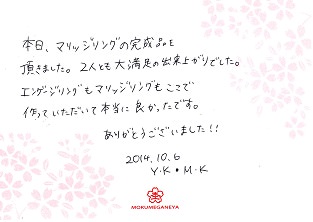 本日、マリッジリングの完成品を
頂きました。2人とも大満足の出来上がりでした。
エンゲージリングもマリッジリングもここで
作っていただいて本当に良かったです。
ありがとうございました!!
2014.10.6
Y.K • M.K
MOKUMEGANEYA